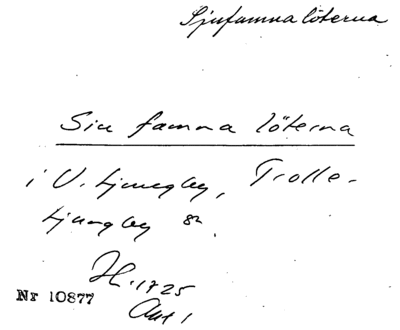 Sjufamna löterna
Siu famna löterna
i V. Ljungby, Trolle-
Ljungby sn.
H. 1725
Nr 10877
Akt 1